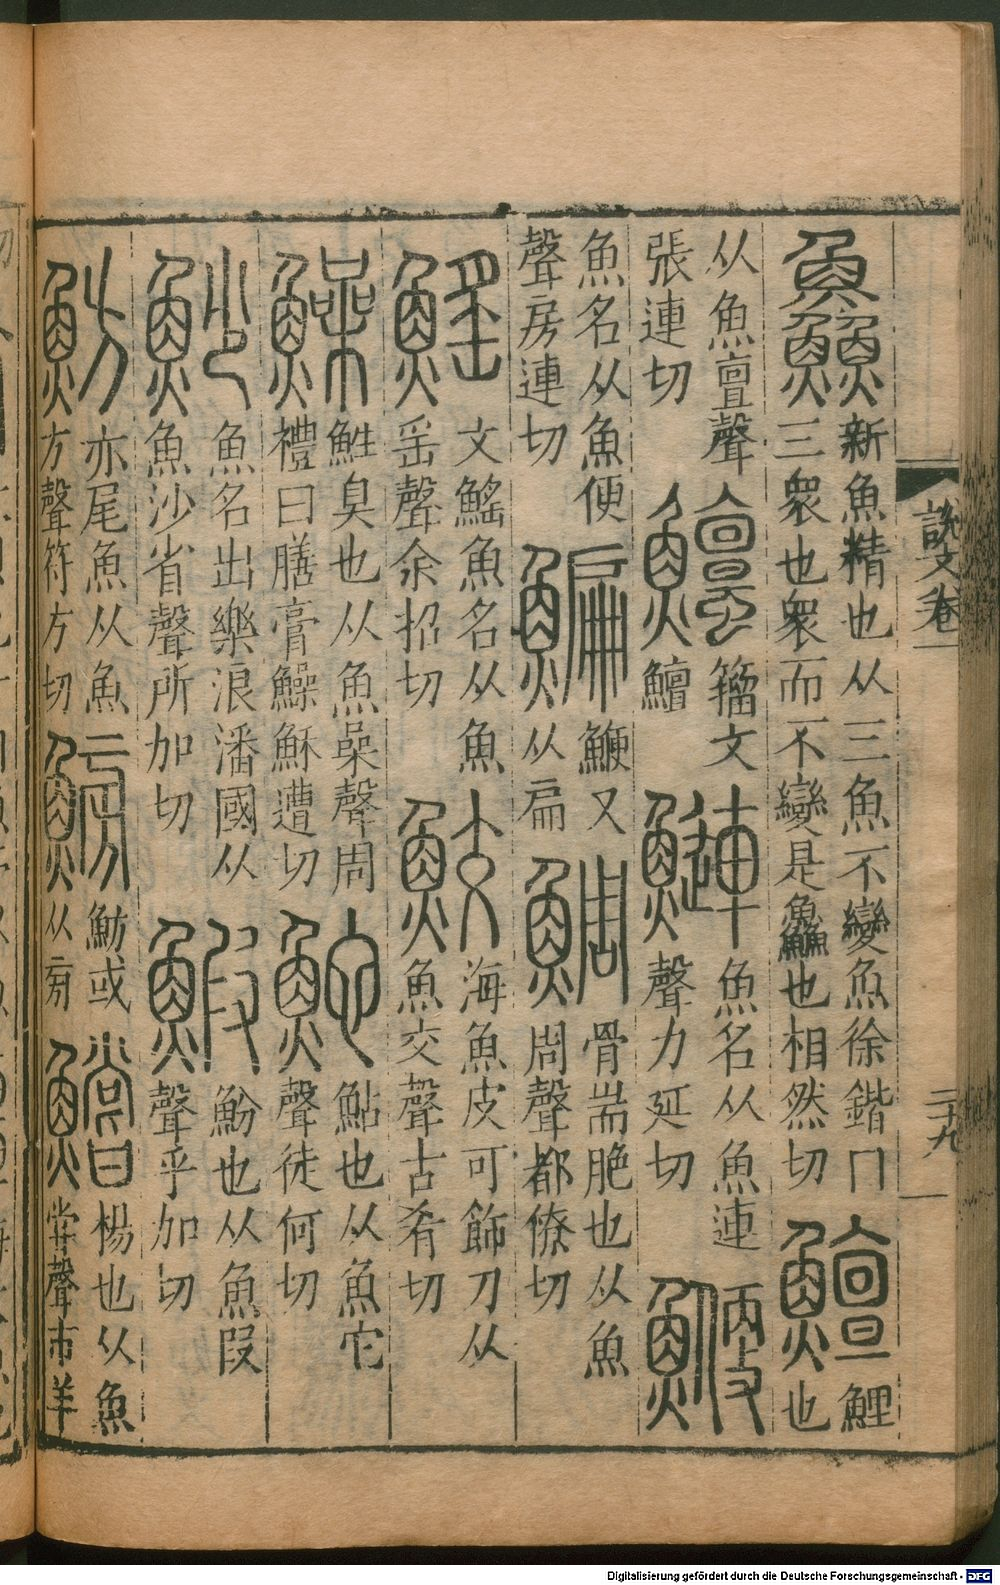 鱻
新魚精也从三魚不變魚徐鍇冂
三衆也衆而不變是鱻也相然切
鱣
鯉
也
从魚亶聲
張連切
鱣
籀文
鱣
鰱
魚名从魚連
聲力延切
鯾
魚名从魚便
聲房連切
鯿
鯾又
从扁
鯛
骨耑脃也从魚
周聲都僚切
鰩
文鰩魚名从魚
䍃聲余招切
鮫
海魚皮可飾刀从
魚交聲古肴切
鱢
鮏臭也从魚喿聲周
禮曰膳膏鱢穌遭切
鮀
鮎也从魚它
聲徒何切
魦
魚名出樂浪潘國从
魚沙省聲所加切
鰕
魵也从魚叚
聲乎加切
魴
亦尾魚从魚
方聲符方切
鰟
魴或
从㫄
鱨
楊也从魚
甞聲市羊
說文卷
Digitalisierung gefördert durch die Deutsche Forschungsgemeinschaft - DFG